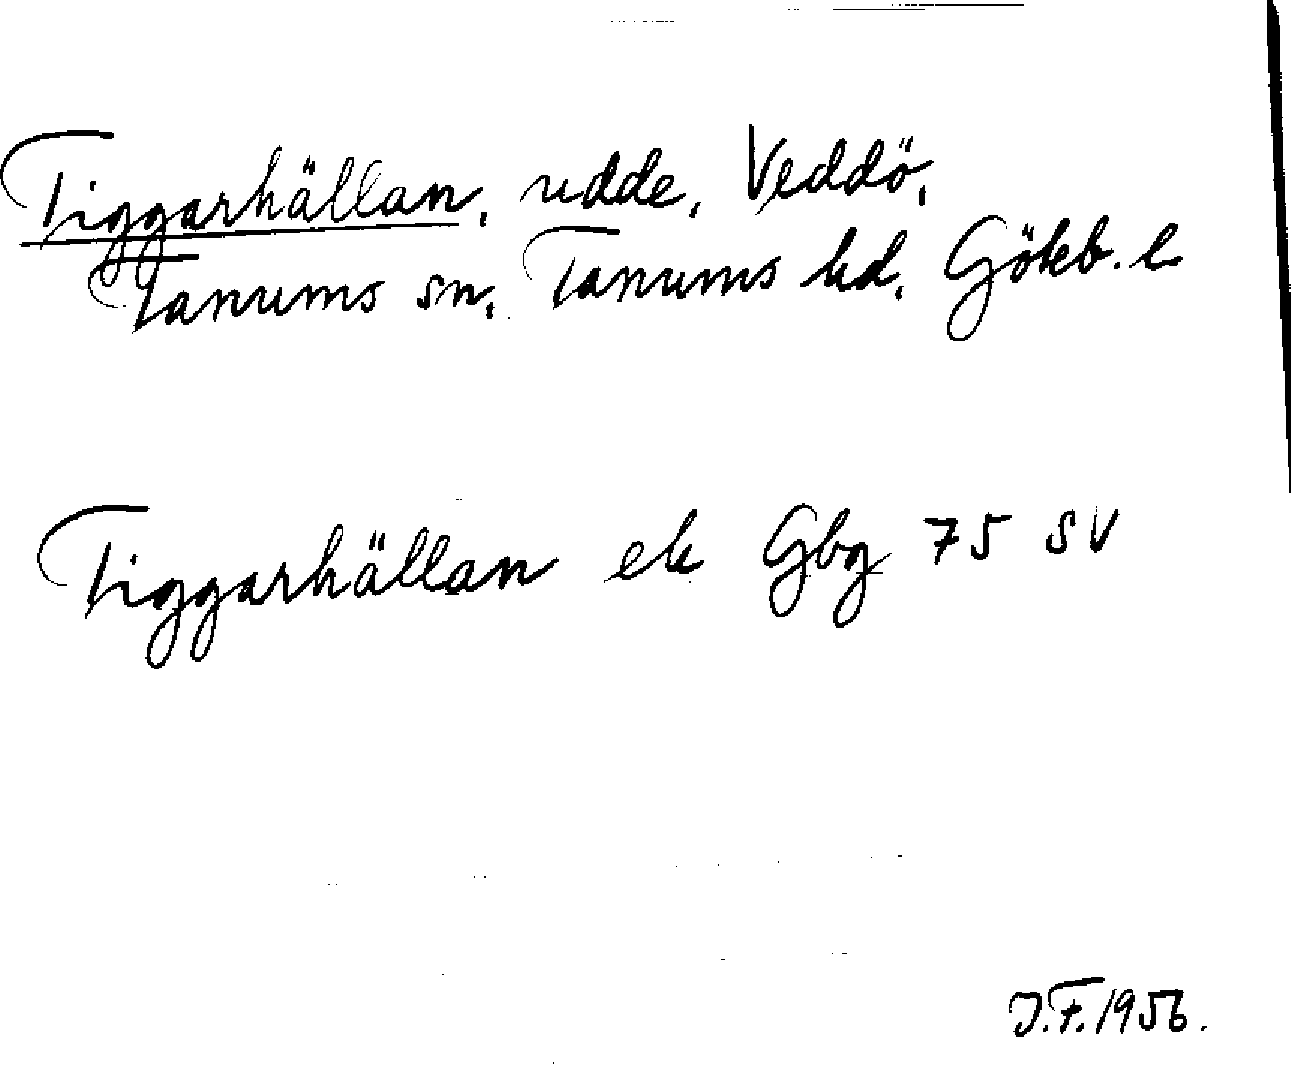 Tiggarhällan, udde, Veddö,
Tanums sn, Tanums hd, Göteb. l
Tiggarhällan ek Gbg 75 SV
J.F. 1956.